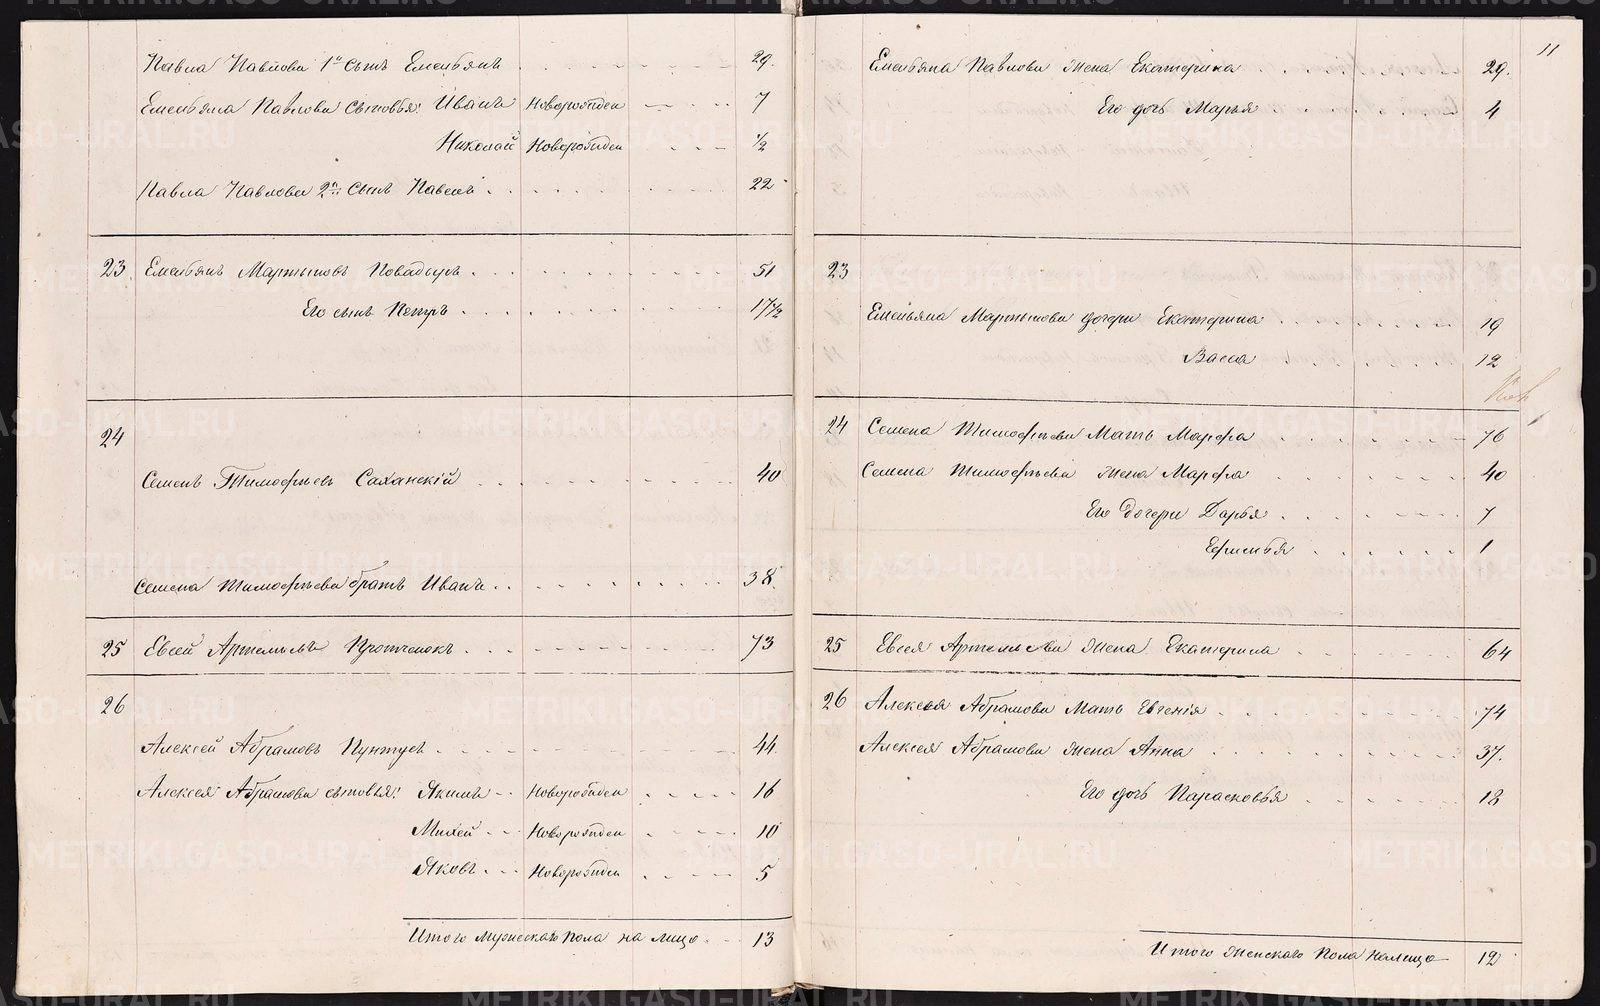 11
Павла Павлова 1й сынъ Емельянъ 29.
Емельяна Павлова сыновья: Иванъ Новорожден 7
Николай Новорожден ½
Павла Павлова 2й сынъ Павелъ 22
23 Емельянъ Мартыновъ 51
Его сынъ Петръ 17½
24
Семенъ Тимофѣевъ Саханскій 40
Семена Тимофѣева братъ Иванъ 38
25 Евсей Артемьевъ 73
26
Алексей Абрамовъ Пунтусъ 44
Алексея Абрамова сыновья: Якимъ Новорожден 16
Михей Новорожден 10
Яковъ Новорожден 5
Итого мужескаго пола на лицо 13
Емельяна Павлова жена Екатерина 29.
Его дочь Марья 4
23
Емельяна Мартынова дочери Екатерина 19
Васса 12
24 Семена Тимофѣева Мать Марфа 76
Семена Тимофѣева жена Марфа 40
Его дочери Дарья 7
Ефимья 1
25 Евсея Артемьева жена Екатерина 64
26 Алексея Абрамова Мать Евгенія 74
Алексея Абрамова жена Анна 37.
Его дочь Парасковья 18
Итого женскаго пола налицо 12
METRIKI.GASO-URAL.RU